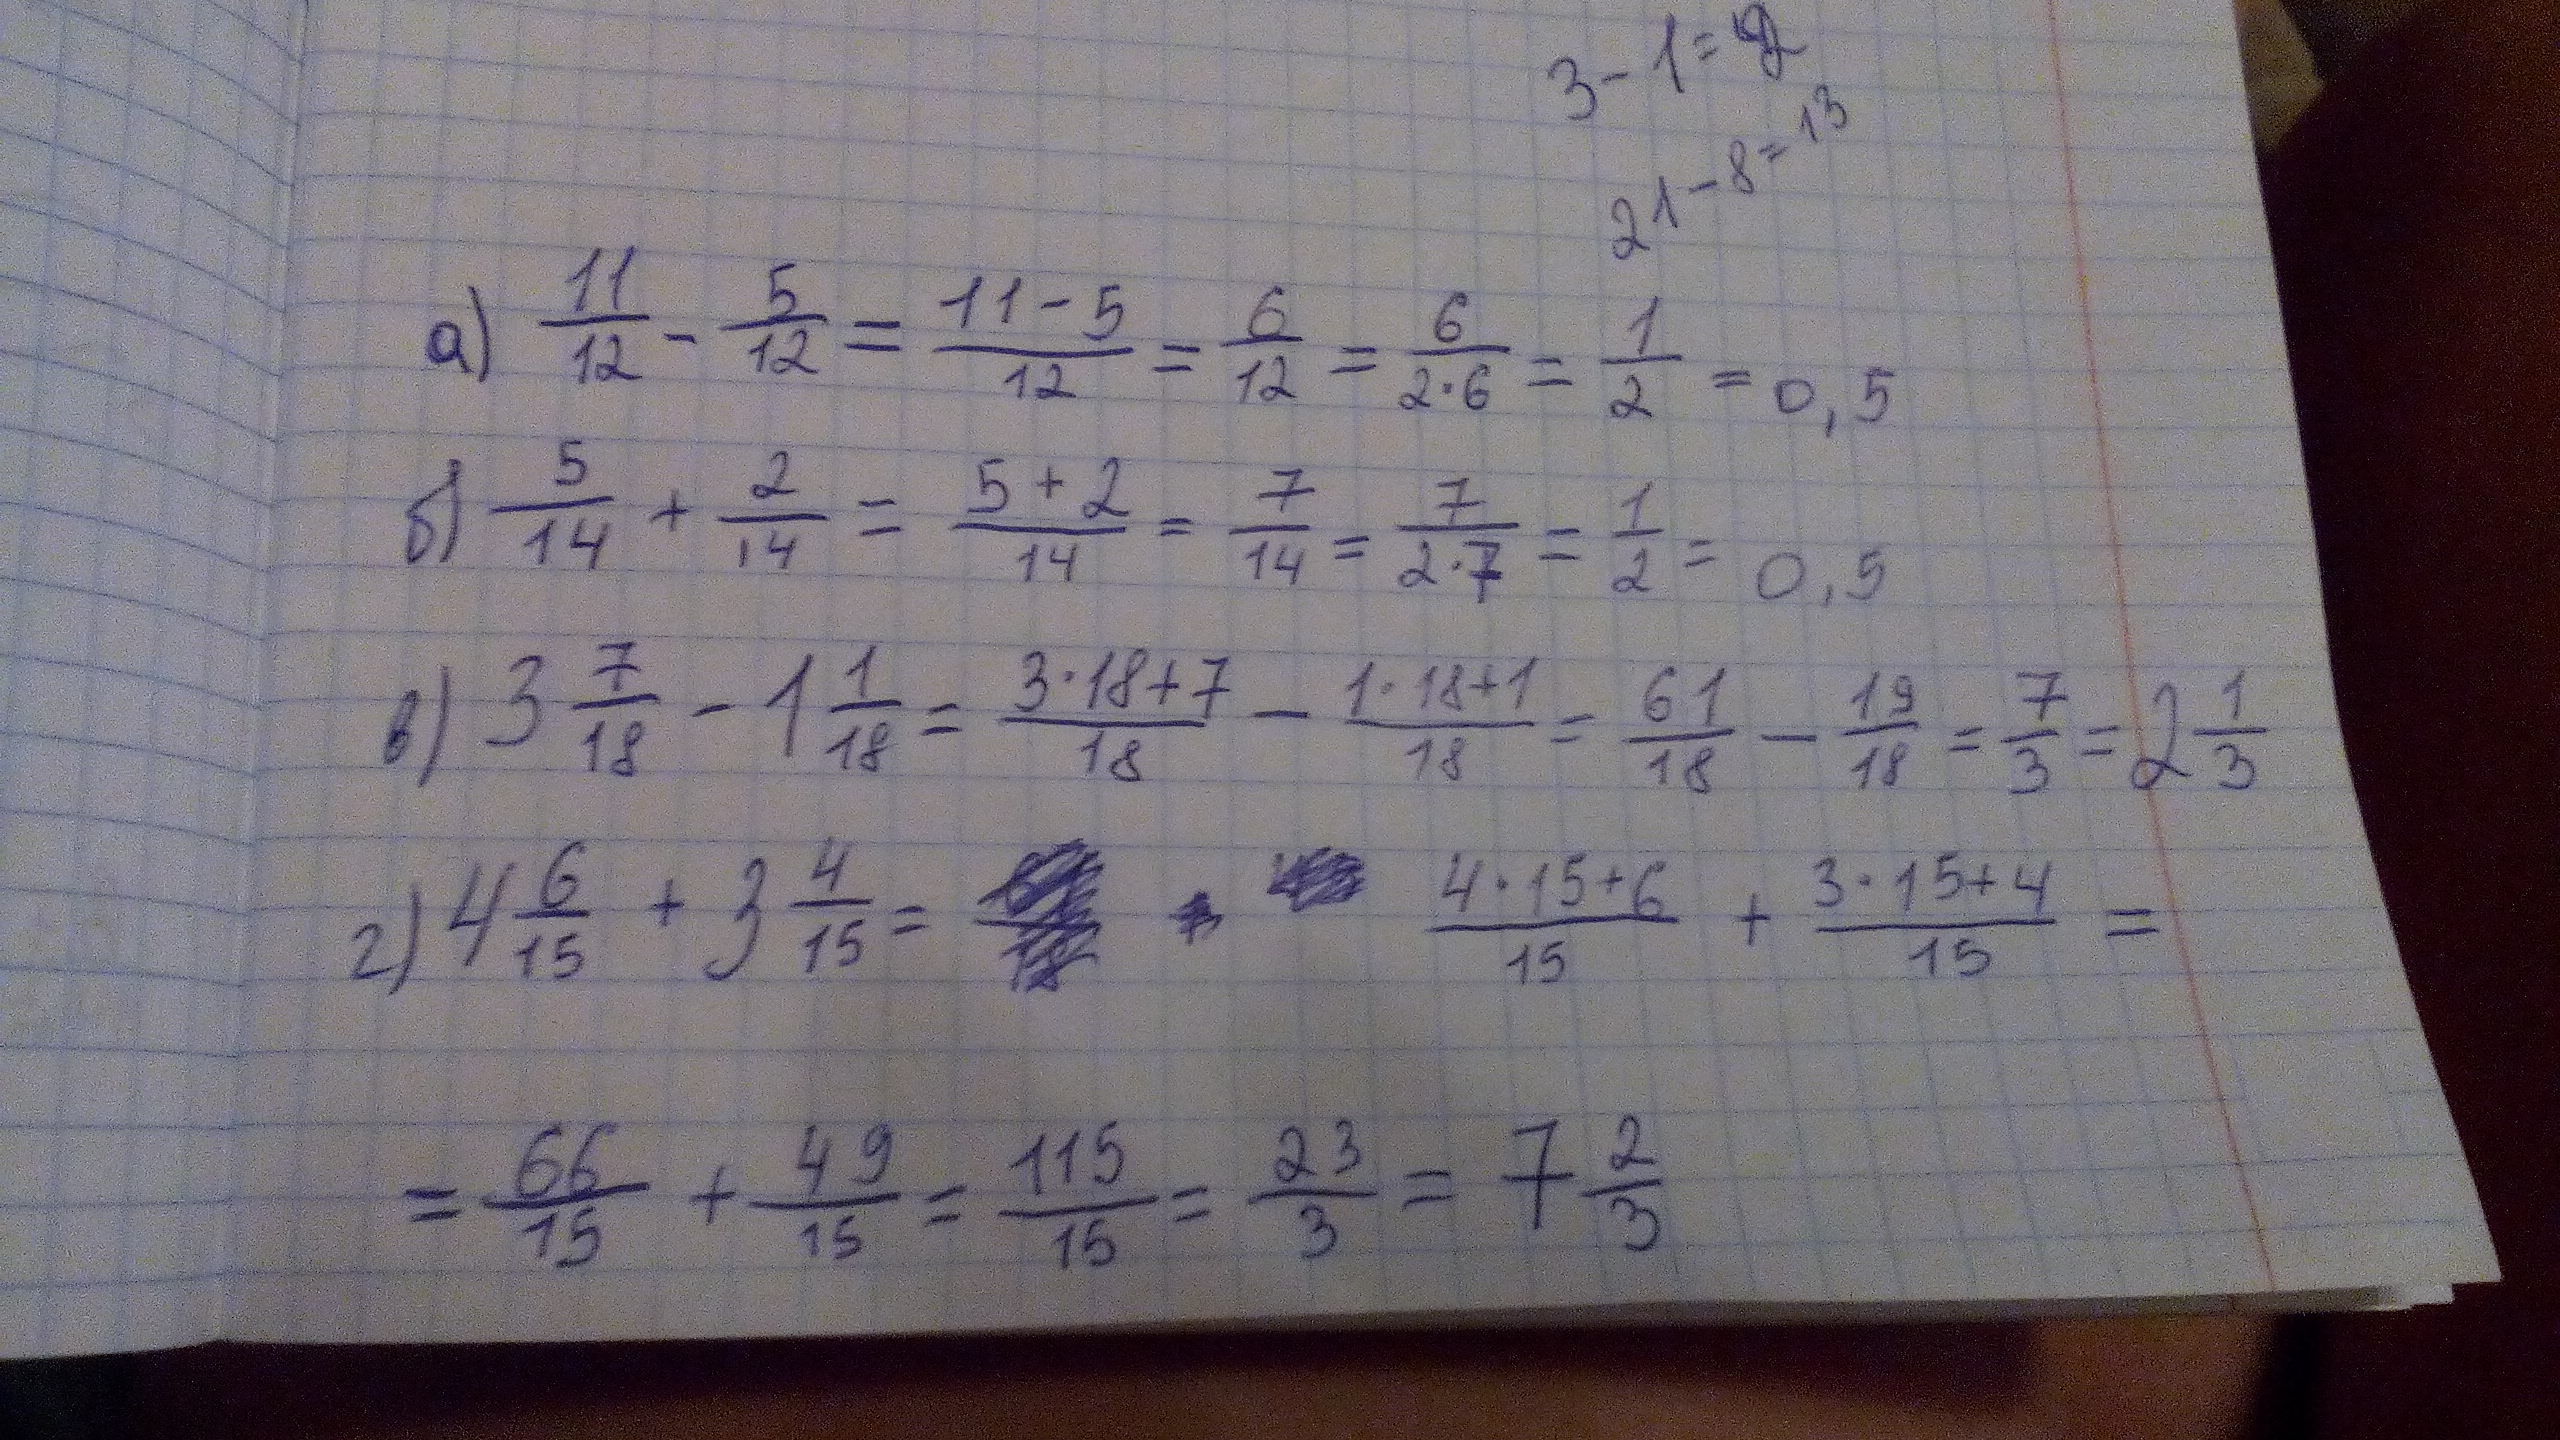 3-1=2
21-8=13
а) 11/12 - 5/12 = (11-5)/12 = 6/12 = 6/(2·6) = 1/2 = 0,5
б) 5/14 + 2/14 = (5+2)/14 = 7/14 = 7/(2·7) = 1/2 = 0,5
в) 3 7/18 - 1 1/18 = (3·18+7)/18 - (1·18+1)/18 = 61/18 - 19/18 = 7/3 = 2 1/3
г) 4 6/15 + 3 4/15 = (4·15+6)/15 + (3·15+4)/15 =
= 66/15 + 49/15 = 115/15 = 23/3 = 7 2/3